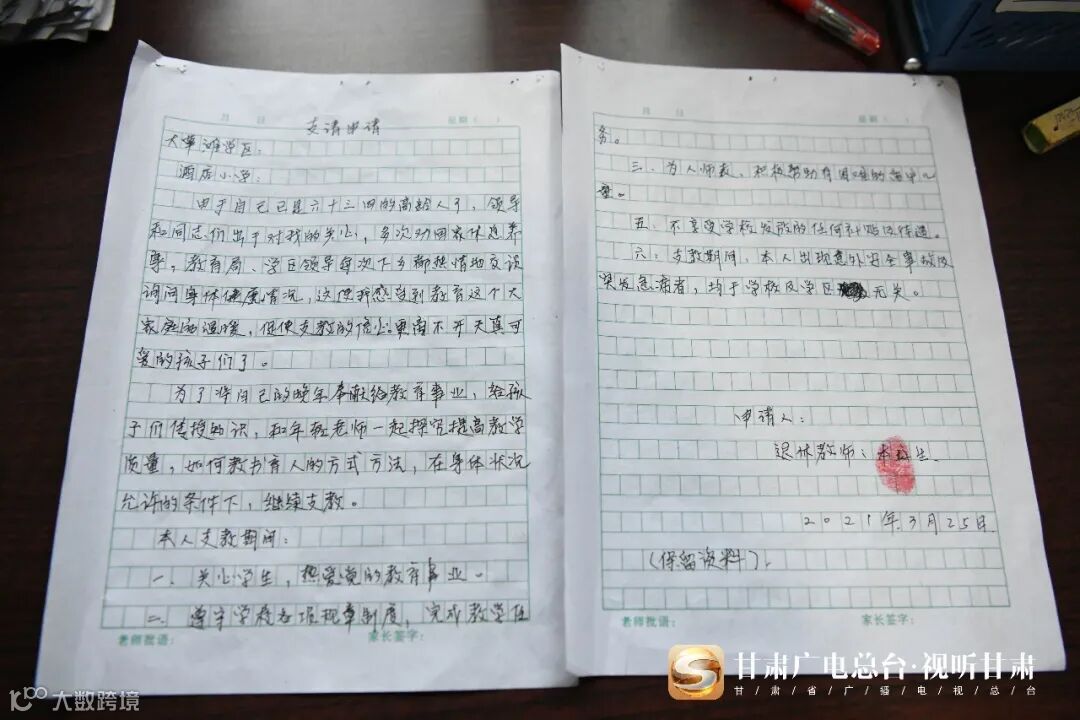 月 日 星期（ ）
支请申请
大草滩学区：
酒店小学：
由于自己已是六十三周的高龄人了，领导
和同志们出于对我的关心，多次劝回家休息养
尊，教育局、学区领导每次下乡都热情地交谈
询问身体健康情况，这使我感受到教育这个大
家庭的温暖，促使支教的信心更离不开天真可
爱的孩子们了。
为了将自己的晚年奉献给教育事业，给孩
子们传授知识，和年轻老师一起探究提高教学
质量，如何教书育人的方式方法，在身体状况
允许的条件下，继续支教。
本人支教期间：
一、关心学生，热爱党的教育事业。
二、遵守学校各项规章制度，完成教学任
老师批语： 家长签字：
月 日 星期（ ）
务。
三、为人师表，积极帮助有困难的
童。
五、不享受学校发放的任何补贴及待遇。
六：支教期间，本人出现意外安全事故及
突发急病者，均于学校及学区无关。
申请人：
退休教师：
2021年3月25日
（保留资料）
老师批语： 家长签字：
甘肃广电总台·视听甘肃
甘肃省广播电视总台
大数跨境